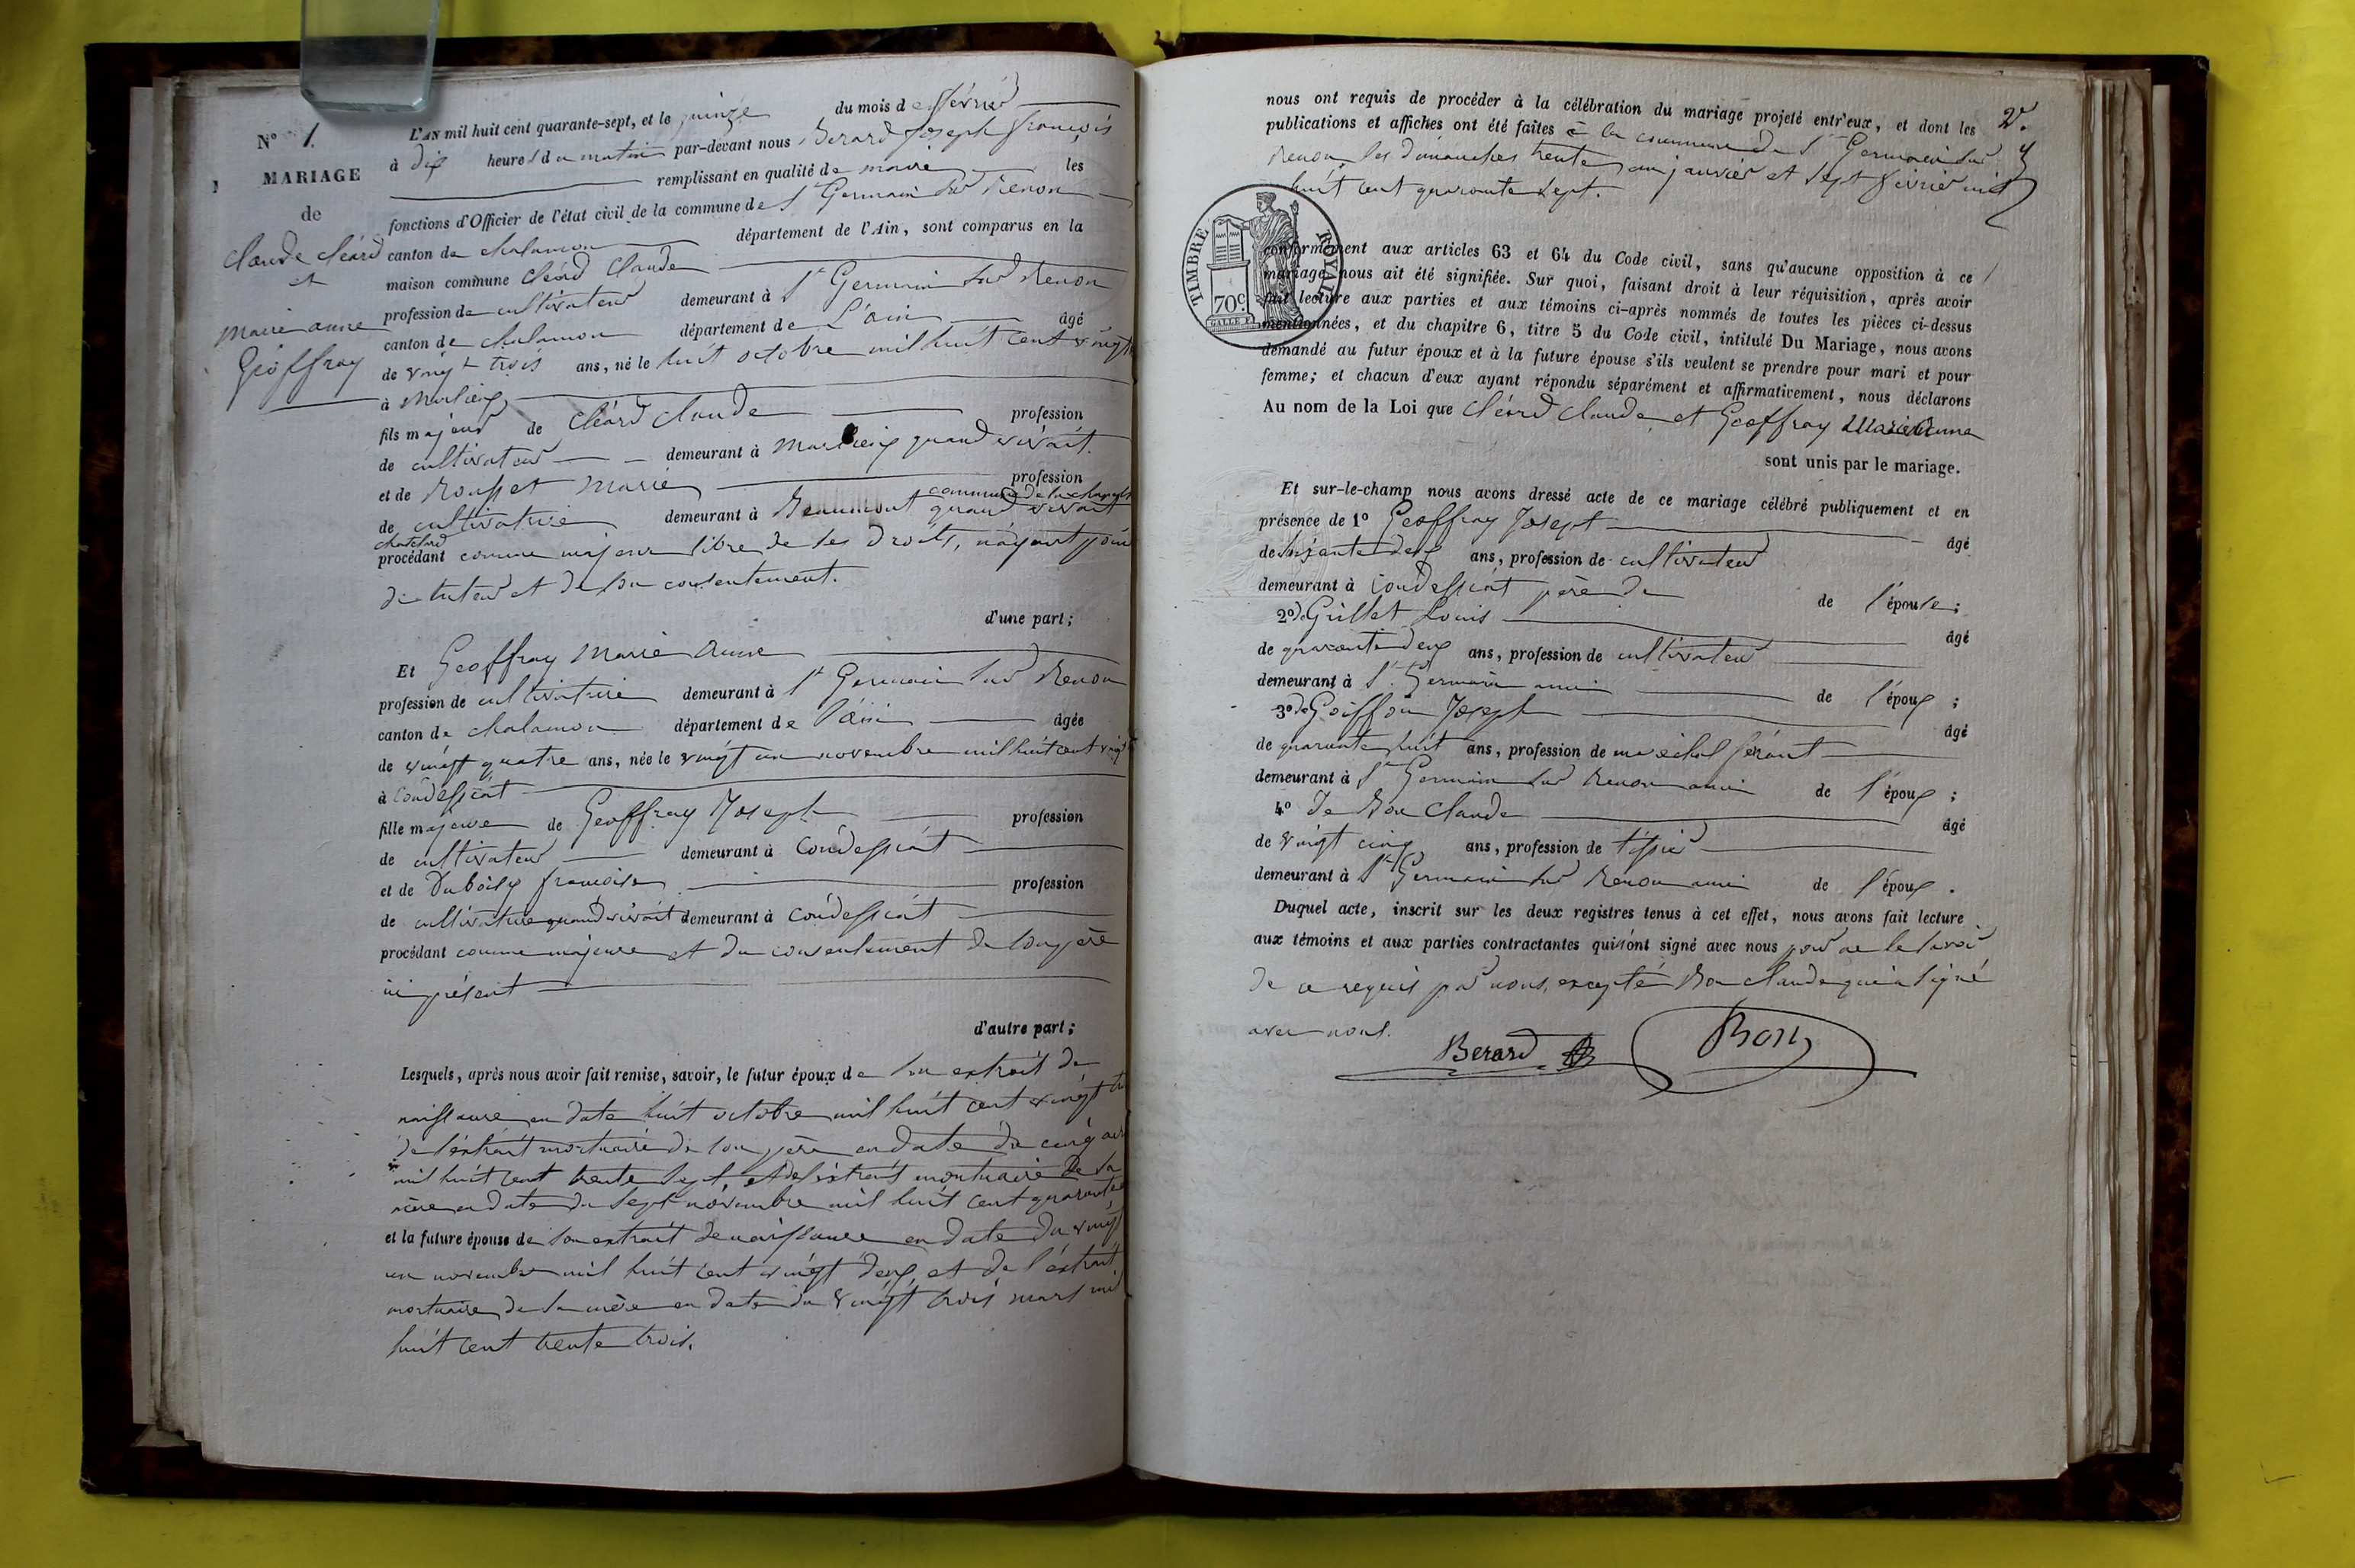 N° 1.
MARIAGE
de
Claude Cléard
et
marie anne
Geoffray
L'AN mil huit cent quarante-sept, et le quinze du mois de février
à dix heures du matin par-devant nous Berard Joseph françois
remplissant en qualité de maire les
fonctions d'Officier de l'état civil de la commune de St Germain sur Renon
canton de chalamon département de l'Ain, sont comparus en la
maison commune Cléard Claude
profession de cultivateur demeurant à St Germain sur Renon
canton de chalamon département de L'ain âgé
de vingt trois ans, né le huit octobre mil huit cent vingt
à Marlieux
fils majeur de Cléard Claude profession
de cultivateur demeurant à Marlieux quand vivait.
et de Rousset Marie profession
commune de la chapelle
de cultivatrice demeurant à Beaumont quand vivait
chatelard
procédant comme majeur libre de ses droits, n'ayant point
de tuteur et de son consentement.
d'une part;
Et Geoffray Marie Anne
profession de cultivatrice demeurant à St Germain sur Renon
canton de chalamon département de l'ain âgée
de vingt quatre ans, née le vingt un novembre mil huit cent vingt
à Condessiat
fille majeure de Geoffray Joseph profession
de cultivateur demeurant à Condessiat
et de Duboily françoise profession
de cultivatrice quand vivait demeurant à Condessiat
procédant comme majeure et du consentement de son père
ici présent
d'autre part;
Lesquels, après nous avoir fait remise, savoir, le futur époux de son extrait de
naissance en date huit octobre mil huit cent vingt
de l'extrait mortuaire de son père en date du cinq
mil huit cent trente sept, et de l'extrait mortuaire de sa
mère en date du sept novembre mil huit cent quarante
et la future épouse de son extrait de naissance en date du vingt
un novembre mil huit cent vingt deux, et de l'extrait
mortuaire de sa mère en date du vingt trois mars mil
huit cent trente trois.
2e.
nous ont requis de procéder à la célébration du mariage projeté entr'eux, et dont les
publications et affiches ont été faites à la commune de St Germain sur
Renon, les dimanches trente un janvier et sept février mil
huit cent quarante sept.
TIMBRE ROYAL
70c.
GALLE F.
conformément aux articles 63 et 64 du Code civil, sans qu'aucune opposition à ce
mariage nous ait été signifiée. Sur quoi, faisant droit à leur réquisition, après avoir
fait lecture aux parties et aux témoins ci-après nommés de toutes les pièces ci-dessus
mentionnées, et du chapitre 6, titre 5 du Code civil, intitulé Du Mariage, nous avons
demandé au futur époux et à la future épouse s'ils veulent se prendre pour mari et pour
femme; et chacun d'eux ayant répondu séparément et affirmativement, nous déclarons
Au nom de la Loi que Cléard Claude et Geoffray Marie Anne
sont unis par le mariage.
Et sur-le-champ nous avons dressé acte de ce mariage célébré publiquement et en
présence de 1° Geoffray Josept âgé
de soixante deux ans, profession de cultivateur
demeurant à Condessiat père de de l'épouse;
2° de Grillet Louis âgé
de quarante deux ans, profession de cultivateur
demeurant à St Germain ami de l'époux;
3° de Goiffon Joseph âgé
de quarante huit ans, profession de maréchal férant
demeurant à St Germain sur Renon ami de l'époux;
4° de Bon Claude âgé
de vingt cinq ans, profession de tissier
demeurant à St Germain sur Renon ami de l'époux.
Duquel acte, inscrit sur les deux registres tenus à cet effet, nous avons fait lecture
aux témoins et aux parties contractantes qui n'ont signé avec nous pour ne le savoir
de ce requis par nous, excepté Bon Claude qui a signé
avec nous.
Berard Bon